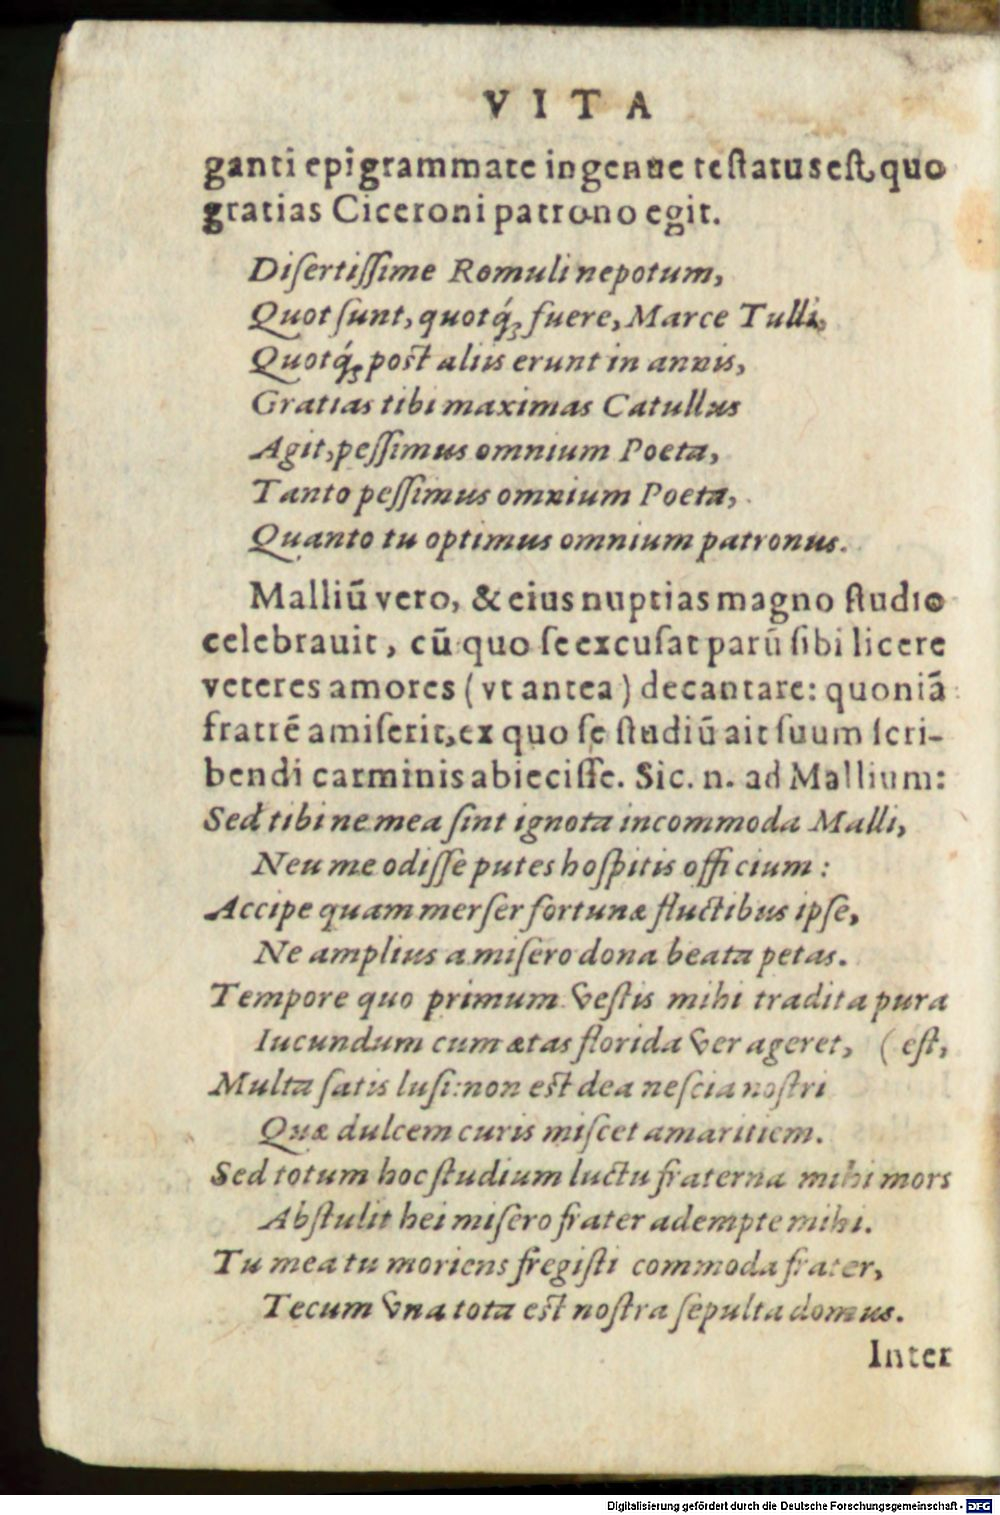 VITA
ganti epigrammate ingenue testatus est, quo
gratias Ciceroni patrono egit.
Disertiſſime Romuli nepotum,
Quot ſunt, quotq́ꝫ fuere, Marce Tulli,
Quotq́ꝫ post aliis erunt in annis,
Gratias tibi maximas Catullus
Agit, peſſimus omnium Poeta,
Tanto peſſimus omnium Poeta,
Quanto tu optimus omnium patronus.
Malliū vero, & eius nuptias magno ſtudio
celebrauit, cū quo ſe excuſat parū ſibi licere
veteres amores (vt antea) decantare: quoniā
fratrē amiſerit, ex quo ſe ſtudiū ait ſuum ſcri-
bendi carminis abieciſſe. Sic. n. ad Mallium:
Sed tibi ne mea ſint ignota incommoda Malli,
Neu me odiſſe putes hoſpitis officium:
Accipe quam merſer fortunæ fluctibus ipſe,
Ne amplius a miſero dona beata petas.
Tempore quo primum veſtis mihi tradita pura
Iucundum cum ætas florida ver ageret, (eſt,
Multa ſatis luſi: non est dea neſcia noſtri
Quæ dulcem curis miſcet amaritiem.
Sed totum hoc ſtudium luctu fraterna mihi mors
Abſtulit hei miſero frater adempte mihi.
Tu mea tu moriens fregiſti commoda frater,
Tecum vna tota est noſtra ſepulta domus.
Inter
Digitalisierung gefördert durch die Deutsche Forschungsgemeinschaft - DFG